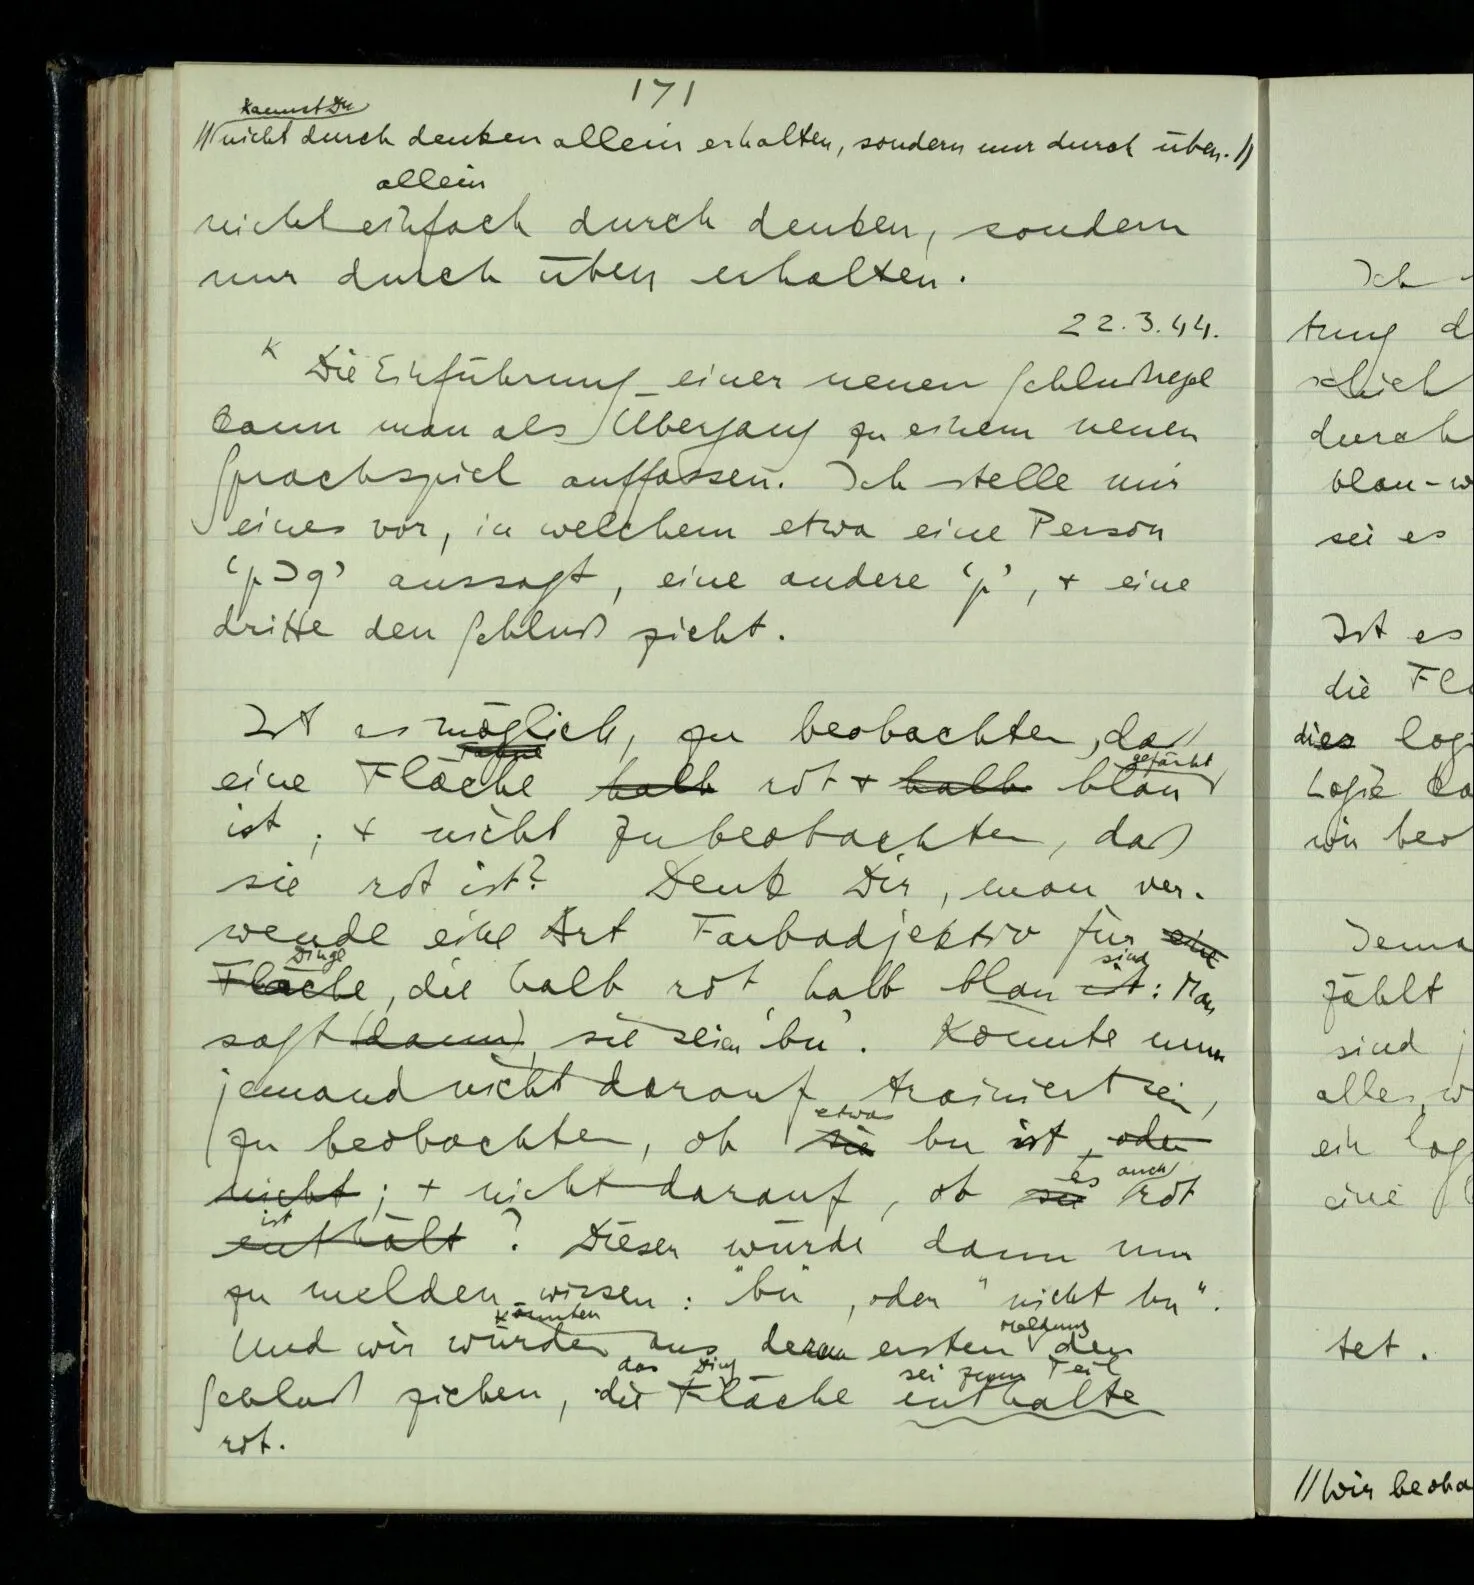 171
kannst Du
//nicht durch denken allein erhalten, sondern nur durch üben.//
allein
nicht einfach durch denken, sondern
nur durch üben erhalten.
22.3.44.
Die Einführung einer neuen Schlußregel
kann man als Übergang zu einem neuen
Sprachspiel auffassen. Ich stelle mir
eines vor, in welchem etwa eine Person
‘p⊃q’ aussagt, eine andere ‘p’, + eine
dritte den Schluß zieht.
Ist es möglich, zu beobachten, daß
Fahne
gefärbt
eine Fläche halb rot + halb blau
ist; + nicht zu beobachten, daß
sie rot ist? Denk Dir, man ver-
wende eine Art Farbadjektiv für eine
Dinge
sind
Fläche, die halb rot halb blau ist: Man
sagt (dann) sie seien ‘bu’. Könnte nun
jemand nicht darauf trainiert sein,
etwas
zu beobachten, ob sie bu ist, oder
es auch
nicht; + nicht darauf, ob sie rot
ist
enthält? Dieser würde dann nur
zu melden wissen: "bu", oder "nicht bu".
könnten
Meldung
Und wir würden aus der ersten den
das Ding
sei zum Teil
Schluß ziehen, die Fläche enthalte
rot.
Ich
tung d
schieh
durch
blau-w
sei es
Ist es
die Flä
dies logi
Logik ka
wir beo
Jema
zählt
sind j
alles, w
ein log
eine
tet.
//Wir beoba